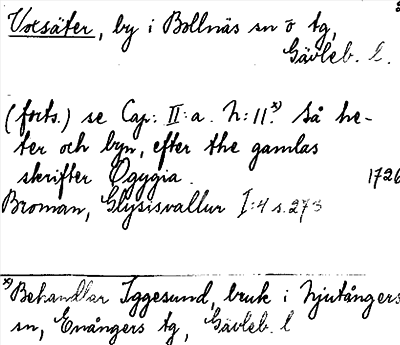 Voxsäter, by i Bollnäs sn o tg,
Gävleb. l.
(forts.) se Cap: II:a. N:11.x) Så he-
ter och byn, efter the gamlas
skrifter Ogygia. 1726
Broman, Glysisvallur I:4 s. 273
x) Behandlar Iggesund, bruk i Njutångers
sn, Enångers tg, Gävleb. l